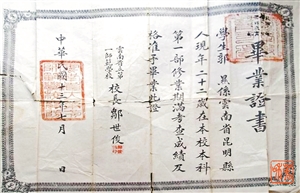 畢業證書
學生郭
系雲南省昆明縣
人現年二十二歲在本校本科
第一部修業期滿考查成績及
格准予畢業此證
雲南省立第一師範學校
校長鄒世俊
中華民國十三年七月 日